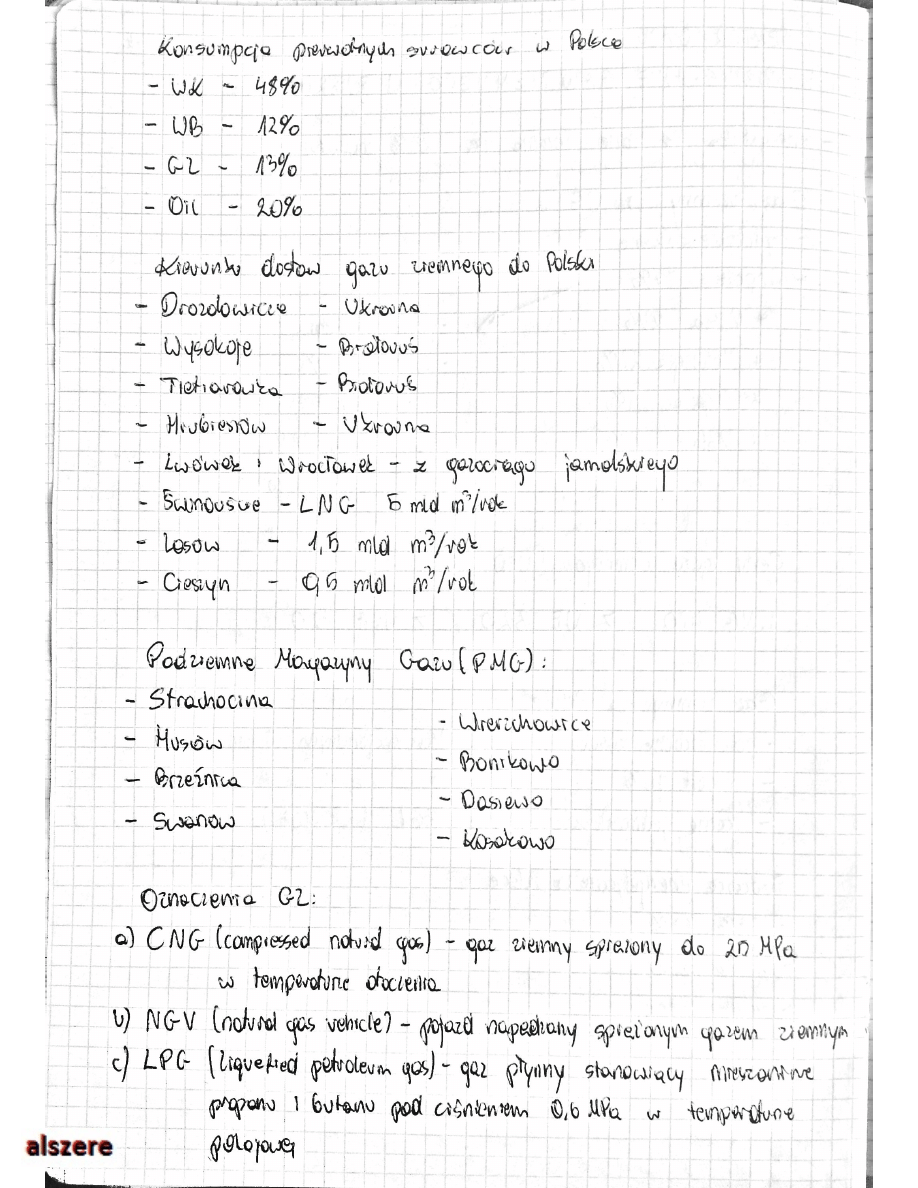 Konsumpcja pierwotnych surowców w Polsce
- WK - 48%
- WB - 12%
- GZ - 13%
- Oil - 20%
Kierunki dostaw gazu ziemnego do Polski
- Drozdowicze - Ukraina
- Wysokoje - Białoruś
- Tietierowka - Białoruś
- Hrubieszów - Ukraina
- Lwówek i Wrocławek - z gazociągu jamalskiego
- Świnoujście - LNG 5 mld m³/rok
- Lasów - 1,5 mld m³/rok
- Cieszyn - 0,5 mld m³/rok
Podziemne Magazyny Gazu (PMG):
- Strachocina
- Husów
- Brzeźnica
- Swarzów
- Wierzchowice
- Bonikowo
- Daszewo
- Kosakowo
Oznaczenia GZ:
a) CNG (compressed natural gas) - gaz ziemny sprężony do 20 MPa
w temperaturze otoczenia
b) NGV (natural gas vehicle) - pojazd napędzany sprężonym gazem ziemnym
c) LPG (liquefied petroleum gas) - gaz płynny stanowiący mieszaninę
propanu i butanu pod ciśnieniem 0,6 MPa w temperaturze
pokojowej
alszere